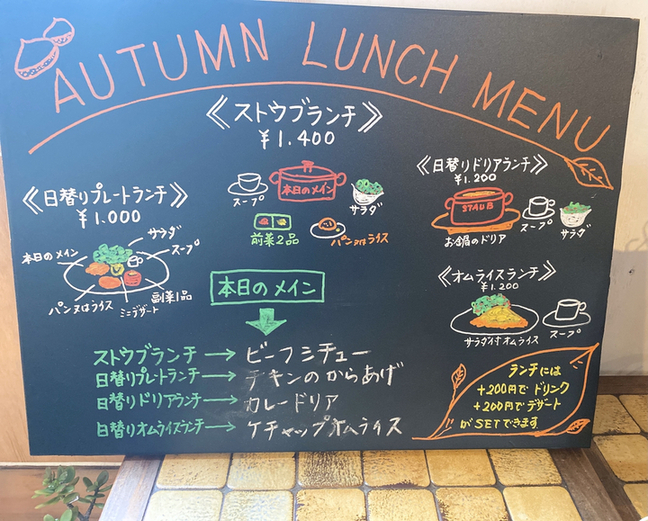 AUTUMN LUNCH MENU
《ストウブランチ》
¥1.400
スープ
本日のメイン
サラダ
前菜2品
パン又はライス
《日替りプレートランチ》
¥1.000
本日のメイン
サラダ
スープ
パン又はライス
ミニデザート
副菜1品
《日替りドリアランチ》
¥1.200
STAUB
スープ
サラダ
お鍋のドリア
《オムライスランチ》
¥1.200
サラダ付オムライス
スープ
本日のメイン
ストウブランチ → ビーフシチュー
日替りプレートランチ → チキンのからあげ
日替りドリアランチ → カレードリア
日替りオムライスランチ → ケチャップオムライス
ランチには
+200円で ドリンク
+200円で デザート
が SETできます